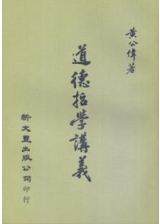 黃公偉著
道德哲學講義
新文豐出版公司印行